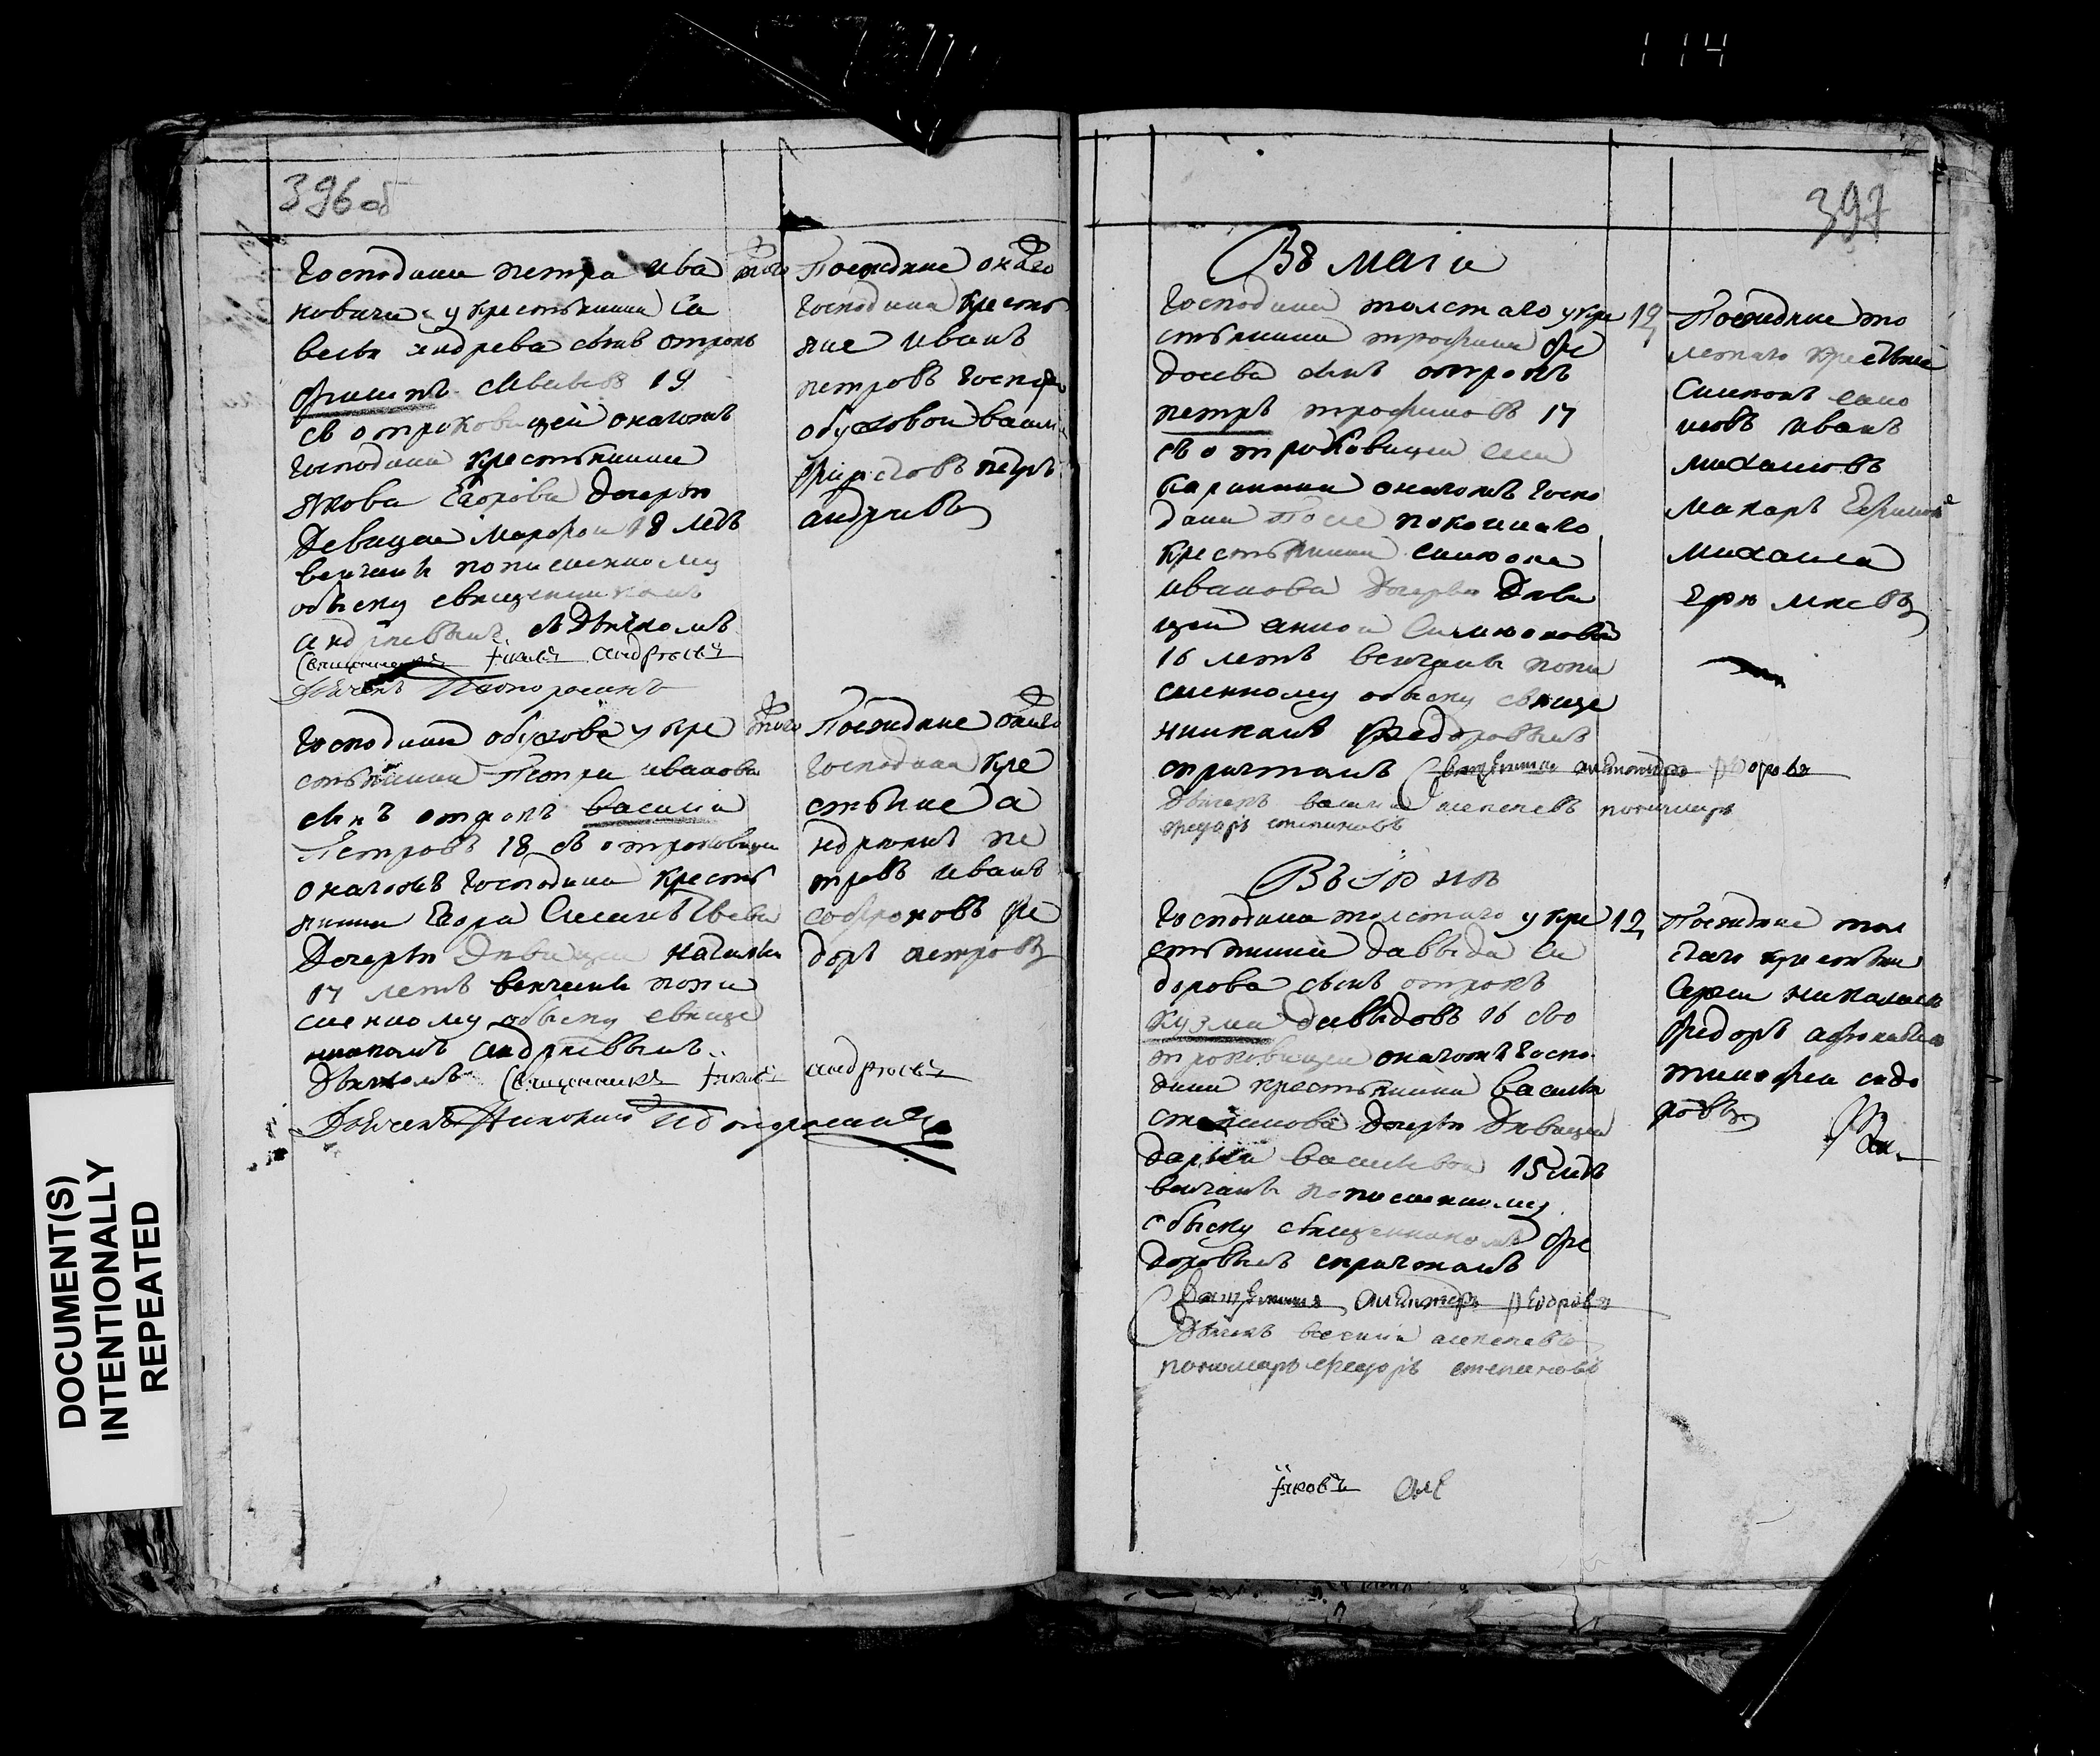 114
396 об
Господина петра ива
новича у крестьянина са
велья андрева сынъ отрокъ
филипъ савельевъ 19
съ отроковицей онагожъ
господина крестьянина
якова Егорова дочерью
девицеи марфои 18 летъ
венчаны пописменному
обыску священникомъ
андреевымъ съ дьячкомъ
Священникъ Iаковъ андреевъ
Дьячекъ
того
Поезжане онаго
господина кресть
яне иванъ
петровъ господи
обуховои васили
петръ
андреевъ
Господина обухова у кре
стьянина Петра иванова
сынъ отрокъ василеи
Петровъ 18 съ отроковицеи
онагожъ господина кресть
янина Егора
дочерью девицеи наталии
17 летъ венчаны попи
сменному обыску свяще
нникомъ андреевымъ
дьячкомъ Священникъ Iаковъ андреевъ
Дьячекъ
того
Поезжане онаго
господина кре
стьяне а
ндреянъ пе
тровъ иванъ
софроновъ фе
доръ петровъ
397
Въ маiи
Господина толстаго у кре
стьянина трофима фе
досева сынъ отрокъ
петръ трофимовъ 17
съ отроковицеи
онагожъ госпо
дина после покоинаго
крестьянина симиона
иванова дочерью деви
цеи анной Симионовой
16 летъ венчаны попи
сменному обыску свяще
нникомъ Федоровымъ
спричтомъ Священникъ Федоровъ
дьячекъ василеи алексеевъ пономарь
федоръ степановъ
12
Поезжане то
лстаго крестьяне
Симионъ
иванъ
михаиловъ
макаръ
михаила
Въ Iюне
Господина толстаго у кре
стьянина давыда си
дорова сынъ отрокъ
кузма давыдовъ 16 сьо
троковицеи онагожъ госпо
дина крестьянина василья
степанова дочерью девицеи
дарьеи васильевои 15 летъ
венчаны пописменному
обыску священникомъ фе
доровымъ спричтомъ
Священникъ Федоровъ
Дьячекъ василеи алексеевъ
пономарь федоръ степановъ
12
Поезжане тол
стаго крестьяне
Сергеи николаевъ
федоръ
тимофеи сидо
ровъ
Iаковъ але
DOCUMENT(S)
INTENTIONALLY
REPEATED